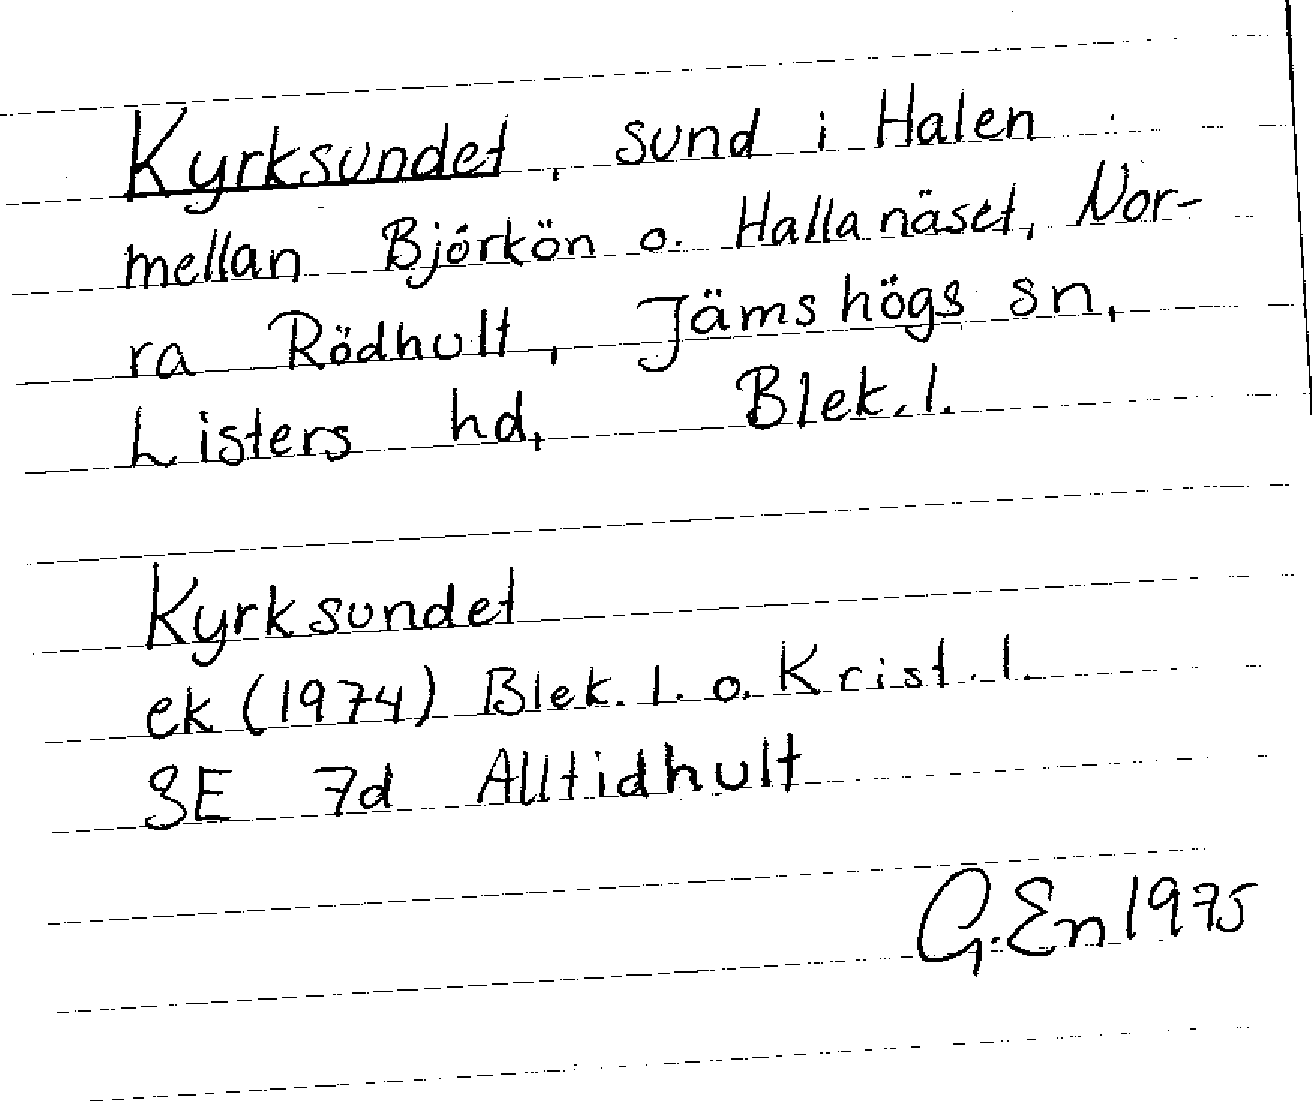 Kyrksundet, sund i Halen
mellan Björkön o. Hallanäset, Nor-
ra Rödhult, Jämshögs sn,
Listers hd, Blek. l.
Kyrksundet
ek (1974) Blek. l. o. Krist. l.
SE 7d Alltidhult
G. En 1975